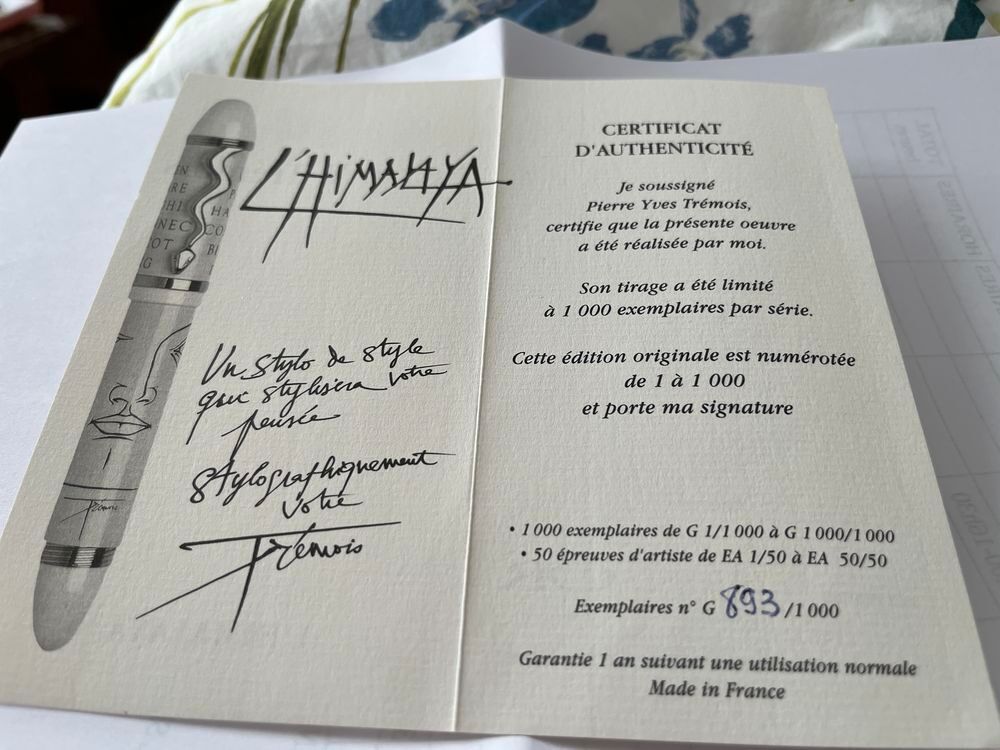 L'HIMALAYA
Un stylo de style
que stylisera votre
pensée
Stylographiquement
votre
Trémois
Trémois
CERTIFICAT
D'AUTHENTICITÉ
Je soussigné
Pierre Yves Trémois,
certifie que la présente oeuvre
a été réalisée par moi.
Son tirage a été limité
à 1 000 exemplaires par série.
Cette édition originale est numérotée
de 1 à 1 000
et porte ma signature
• 1 000 exemplaires de G 1/1 000 à G 1 000/1 000
• 50 épreuves d'artiste de EA 1/50 à EA 50/50
Exemplaires n° G 893 /1 000
Garantie 1 an suivant une utilisation normale
Made in France